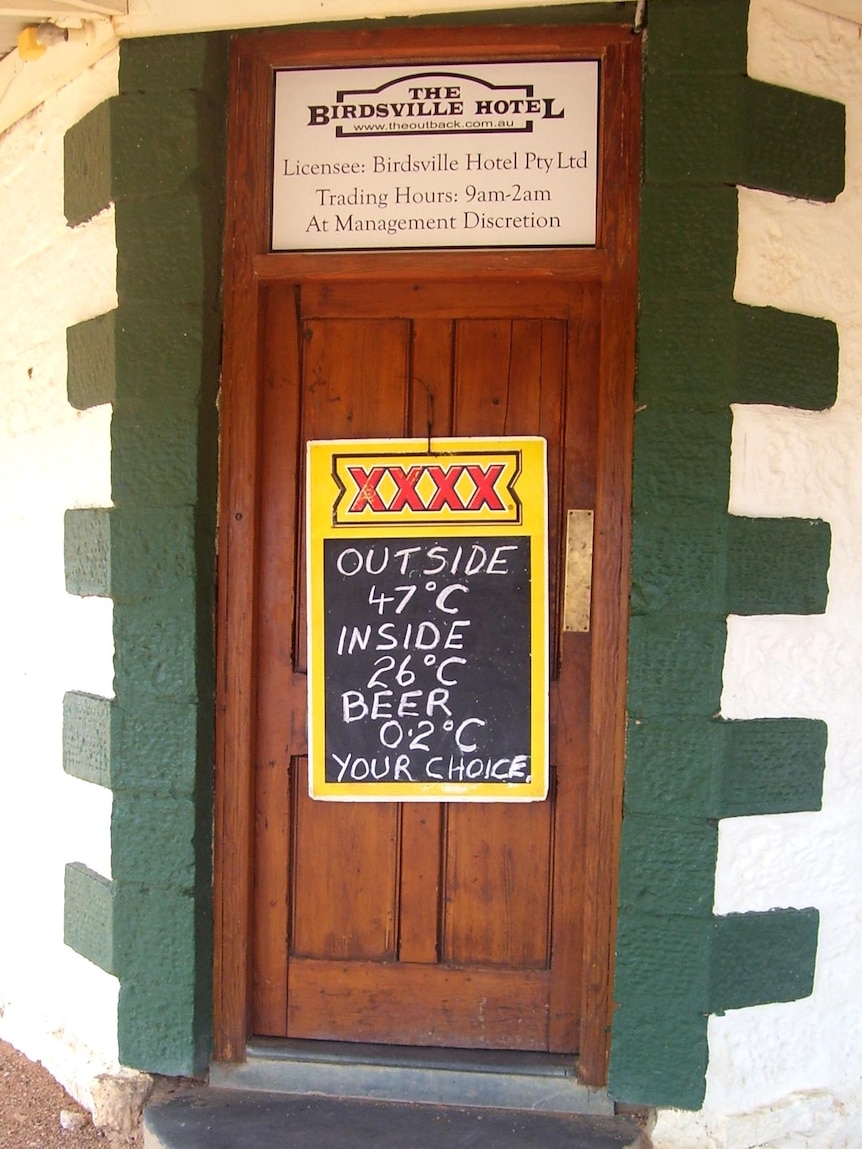 THE
BIRDSVILLE HOTEL
www.theoutback.com.au
Licensee: Birdsville Hotel Pty Ltd
Trading Hours: 9am-2am
At Management Discretion
XXXX
OUTSIDE
47°C
INSIDE
26°C
BEER
0.2°C
YOUR CHOICE.